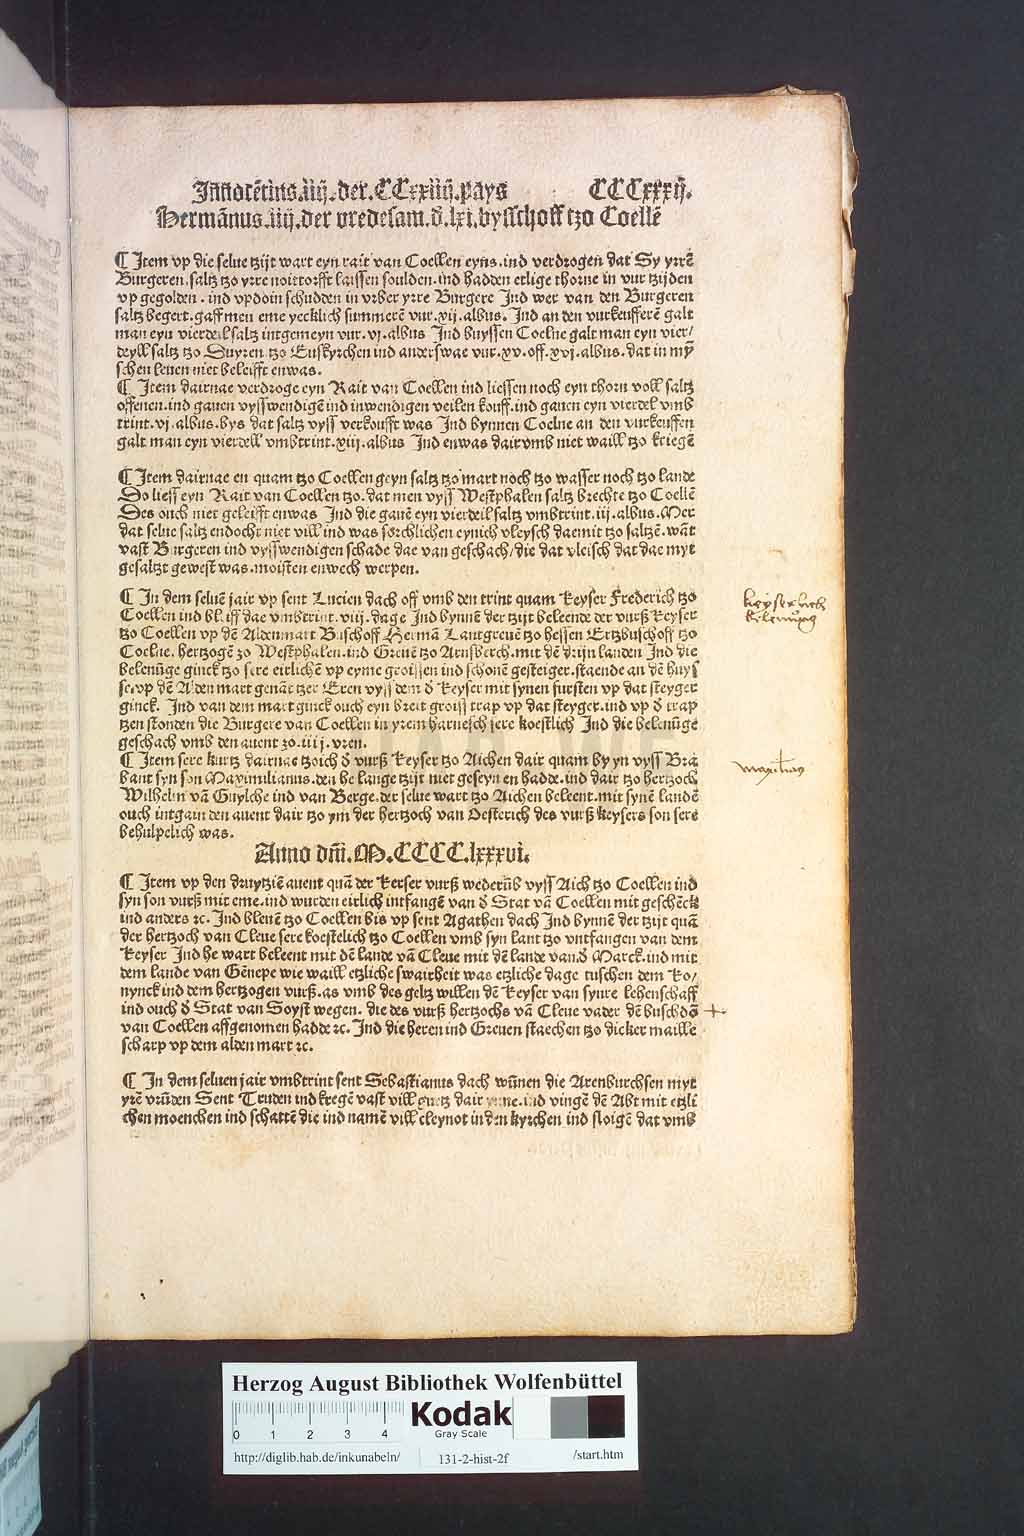 Innocētius.iiij.der.CCxxiiij.pays CCCxxxij.
Hermānus.iiij.der vredesam.d̄.lxi.bysschoff tzo Coellē
¶ Item vp die selue tzijt wart eyn rait van Coellen eyns.ind verdrogen dat Sy yrrē
Burgeren.saltz tzo yrre noittorfft laissen soulden.ind hadden etlige thorne in vur tzijden
vp gegolden.ind vpdoin schudden in vrber yrre Burgere Ind wer van den Burgeren
saltz begert.gaff men eme yecklich summerē vur.xij.albus. Ind an den vurkeufferē galt
man eyn vierdeil saltz intgemeyn vur.vj.albus Ind buyssen Coelne galt man eyn vier/
deyll saltz tzo Duyren tzo Euskyrchen ind anderswae vur.xv.off.xvj.albus.dat in mȳ
schen leuen niet beleifft enwas.
¶ Item dairnae verdroge eyn Rait van Coellen ind liessen noch eyn thorn voll saltz
offenen.ind gauen vysswendigē ind inwendigen veilen kouff.ind gauen eyn vierdel vmb
trint.vj.albus.bys dat saltz vyss verkoufft was Ind bynnen Coelne an den vurkeuffen
galt man eyn vierdell vmbtrint.xiij.albus Ind enwas dairvmb niet waill tzo kriegē
¶ Item dairnae en quam tzo Coellen geyn saltz tzo mart noch tzo wasser noch tzo lande
Do liess eyn Rait van Coellen tzo.dat men vyss Westphalen saltz brechte tzo Coellē
Des ouch niet geleifft enwas Ind die gauē eyn vierdeil saltz vmbtrint.iij.albus.Mer
dat selue saltz endocht niet vill ind was sorchlichen eynich vleysch daemit tzo saltzē.wāt
vast Burgeren ind vysswendigen schade dae van geschach/die dat vleisch dat dae myt
gesaltzt gewest was.moisten enwech werpen.
¶ In dem seluē jair vp sent Lucien dach off vmb den trint quam Keyser Frederich tzo
Coellen ind bleiff dae vmbtrint.viij.dage Ind bynnē der tzijt beleende der vurß Keyser
tzo Coellen vp dē Aldenmart Buschoff Hermā Lantgreuē tzo hessen Ertzbuschoff tzo
Coelne.hertzogē zo Westphalen.ind Greuē tzo Arnsberch.mit dē drijn landen Ind die
belenūge ginck tzo sere eirlichē vp eyme groissen ind schonē gesteiger.staende an dē huys
se vp dē Alden mart genāt tzer Eren vyss dem d̄ Keyser mit synen fursten vp dat steyger
ginck. Ind van dem mart ginck ouch eyn breit groiss trap vp dat steyger.ind vp d̄ trap
tzen stonden die Burgere van Coellen in yrem harnesch sere koestlich Ind die belenūge
geschach vmb den auent zo.iiij.vren.
¶ Item sere kurtz dairnae tzoich d̄ vurß Keyser tzo Aichen dair quam by yn vyss Bra
bant syn son Maximilianus.den he lange tzijt niet geseyn en hadde.ind dair tzo hertzoch
Wilhelm vā Guylche ind van Berge.der selue wart tzo Aichen beleent.mit synē landē
ouch intgain den auent dair tzo ym der hertzoch van Oesterich des vurß keysers son sere
behulpelich was.
Anno dn̄i.M.CCCC.lxxxvi.
¶ Item vp den druytziē auent quā der Keyser vurß wederūb vyss Aich tzo Coellen ind
syn son vurß mit eme.ind wurden eirlich intfangē van d̄ Stat vā Coellen mit geschēck
ind anders ꝛc. Ind bleuē tzo Coellen bis vp sent Agathen dach Ind bynnē der tzijt quā
der hertzoch van Cleue sere koestelich tzo Coellen vmb syn lant tzo vntfangen van dem
Keyser Ind he wart beleent mit dē lande vā Cleue mit dē lande van d̄ Marck.ind mit
dem lande van Gēnepe wie waill etzliche swairheit was etzliche dage tuschen dem Ko/
nynck ind dem hertzogen vurß.as vmb des geltz willen dē Keyser van synre lehenschaff
ind ouch d̄ Stat van Soyst wegen. die des vurß hertzochs vā Cleue vader dē buschdō
van Coellen affgenomen hadde ꝛc. Ind die heren ind Greuen staechen tzo dicker maille
scharp vp dem alden mart ꝛc.
¶ In dem seluen jair vmbtrint sent Sebastianus dach wūnen die Arenburchsen myt
yrē vrūden Sent Truden ind kregē vast vill guetz dair ynne.ind vingē dē Abt mit etzli
chen moenchen ind schattē die ind namē vill cleynot in den kyrchen ind sloigē dat vmb
+
Herzog August Bibliothek Wolfenbüttel
0 1 2 3 4 Kodak
Gray Scale
http://diglib.hab.de/inkunabeln/ 131-2-hist-2f /start.htm